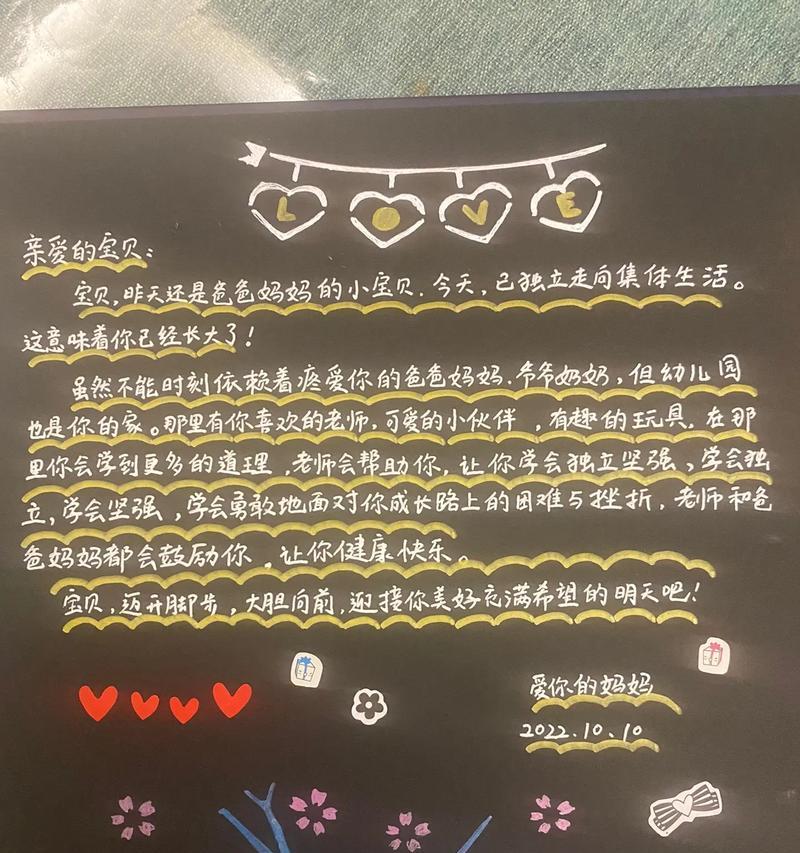 LOVE
亲爱的宝贝：
宝贝，昨天还是爸爸妈妈的小宝贝．今天，已独立走向集体生活。
这意味着你已经长大了！
虽然不能时刻依赖着疼爱你的爸爸妈妈．爷爷奶奶，但幼儿园
也是你的家。那里有你喜欢的老师，可爱的小伙伴，有趣的玩具．在那
里你会学到更多的道理，老师会帮助你，让你学会独立坚强、学会独
立，学会坚强，学会勇敢地面对你成长路上的困难与挫折．老师和爸
爸妈妈都会鼓励你，让你健康快乐。
宝贝，迈开脚步，大胆向前，迎接你美好充满希望的明天吧！
爱你的妈妈
2022.10.10